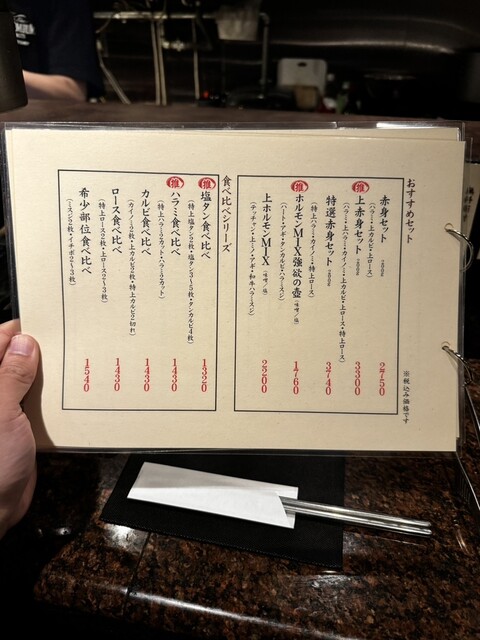 おすすめセット
※税込み価格です
赤身セット 200g
(ハラミ・上カルビ・上ロース)
2750
推
上赤身セット 200g
(ハラミ・上ハラミ・カイノミ・上カルビ・上ロース・特上ロース)
3300
特選赤身セット 200g
(特上ハラミ・カイノミ・特上ロース)
2740
推
ホルモンMIX強欲の壺(味噌/塩)
(ハート・アギ・タンカルビ・ハラースジ)
1760
上ホルモンMIX(味噌/塩)
(テッチャン・上ミノ・アギ・和牛ハラースジ)
2200
食べ比べシリーズ
推
塩タン食べ比べ
(特上塩タン2枚・塩タン3〜5枚・タンカルビ4枚)
1320
推
ハラミ食べ比べ
(特上ハラミ2カット・ハラミ3カット)
1430
カルビ食べ比べ
(カイノミ2枚・上カルビ2枚・特上カルビ2切れ)
1430
ロース食べ比べ
(特上ロース2枚・上ロース2〜3枚)
1430
希少部位食べ比べ
(ミスジ2枚・イチボ2〜3枚)
1540